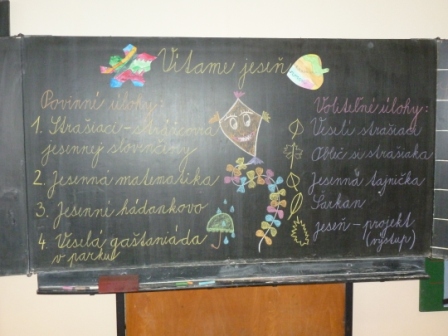 Vítame jeseň
Povinné úlohy:
1. Strašiaci - strážcovia
jesennej slovenčiny
2. Jesenná matematika
3. Jesenné hádankovo
4. Veselá gaštaniáda
v parku
Voliteľné úlohy:
Veselí strašiaci
Obleč si strašiaka
Jesenná tajnička
Šarkan
jeseň - projekt
(výstup)